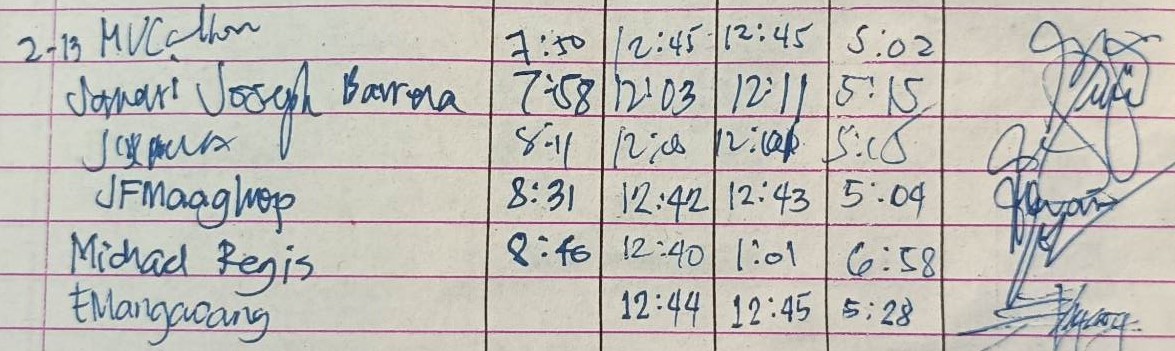 2-13 MVCallon 7:50 12:45 12:45 5:02
Joseph Barrera 7:58 12:03 12:11 5:15
8:11
JFMaaghop 8:31 12:42 12:43 5:04
Michael Regis 8:46 12:40 1:01 6:58
EMangaoang 12:44 12:45 5:28